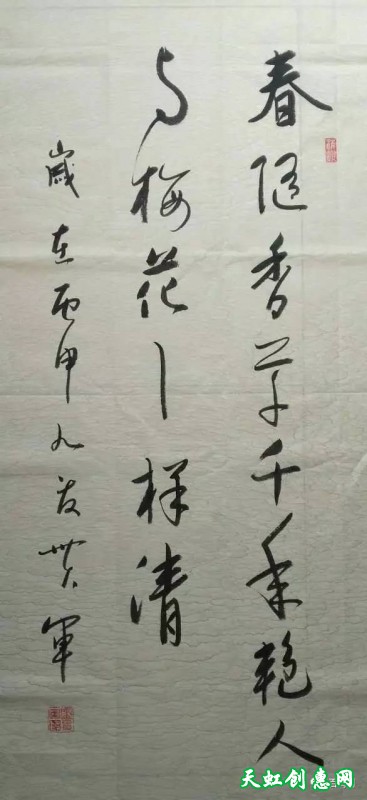 春随香草千年艳人
与梅花一样清
歲在丙申九 軍
天虹创惠网